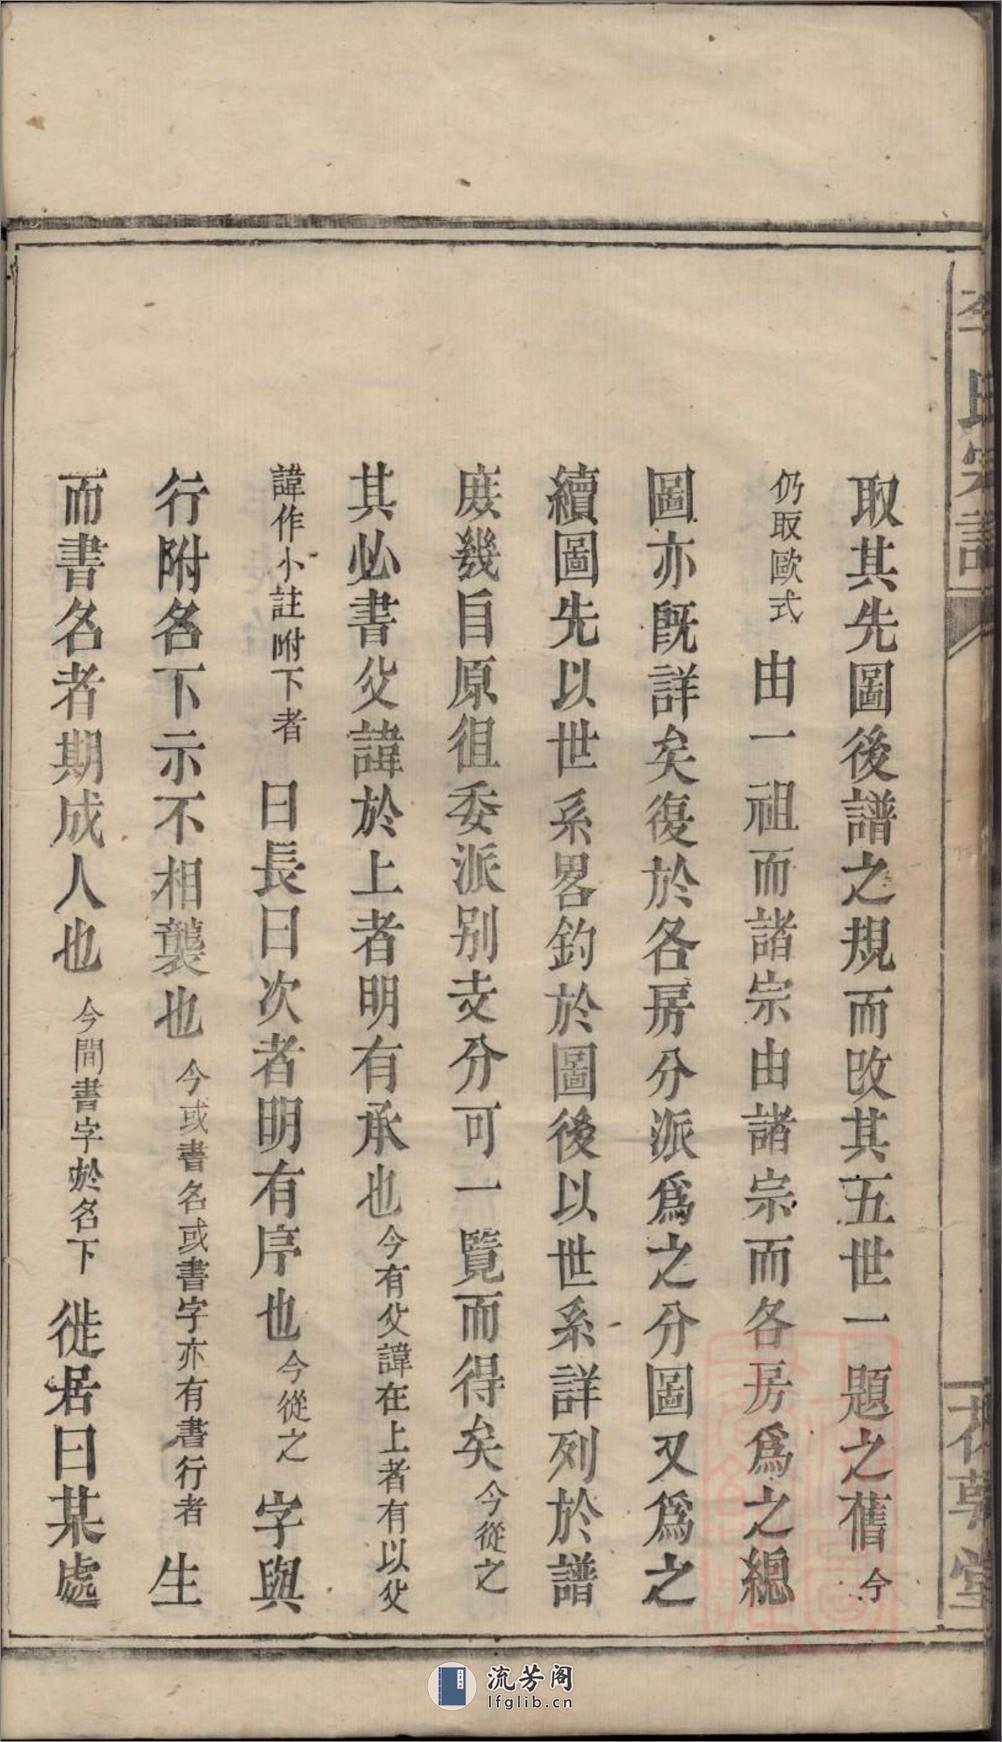 取其先圖後譜之規而改其五世一題之舊今
仍取歐式由一祖而諸宗由諸宗而各房爲之總
圖亦既詳矣復於各房分派爲之分圖又爲之
續圖先以世系畧鈞於圖後以世系詳列於譜
庻幾自原徂委派别支分可一覽而得矣今從之
其必書父諱於上者明有承也今有父諱在上者有以父
諱作小註附下者曰長曰次者明有序也今從之字與
行附名下示不相襲也今或書名或書字亦有書行者生
而書名者期成人也今間書字於名下徙居曰某處
李氏宗譜
堂
流芳阁
lfglib.cn